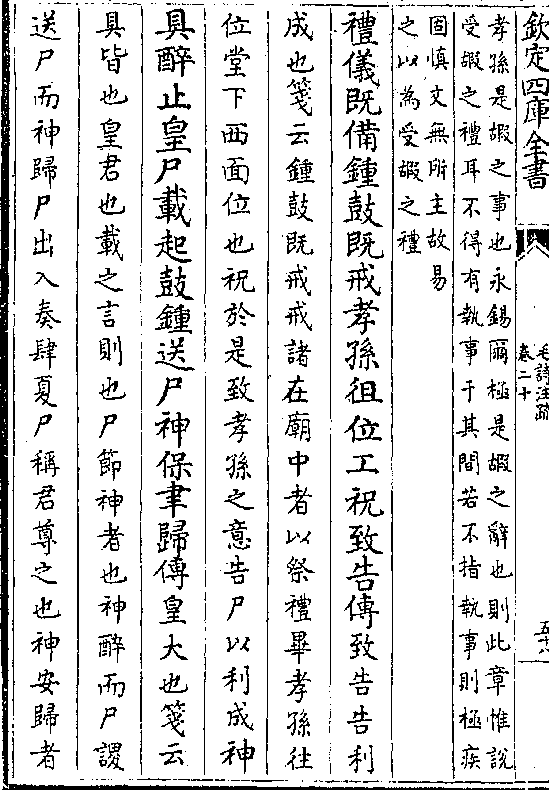 欽定四庫全書
毛詩注疏
卷二十
孝孫是嘏之事也永錫爾極是嘏之辭也則此章惟說
受嘏之禮耳不得有執事于其間若不指執事則極疾
固慎文無所主故易
之以為受嘏之禮
禮儀既備鍾鼓既戒孝孫徂位工祝致告傳致告告利
成也箋云鍾鼓既戒戒諸在廟中者以祭禮畢孝孫往
位堂下西面位也祝於是致孝孫之意告尸以利成神
具醉止皇尸載起鼓鍾送尸神保聿歸傳皇大也箋云
具皆也皇君也載之言則也尸節神者也神醉而尸謖
送尸而神歸尸出入奏肆夏尸稱君尊之也神安歸者